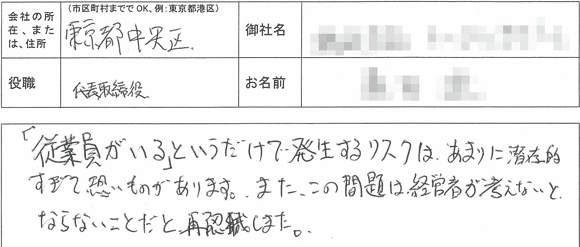 会社の所在、または、住所
(市区町村まででOK、例:東京都港区)
東京都中央区
御社名
役職
代表取締役
お名前
「従業員がいる」というだけで発生するリスクは、あまりに潜在的
すぎて恐いものがあります。また、この問題は経営者が考えないと
ならないことだと再認識しました。